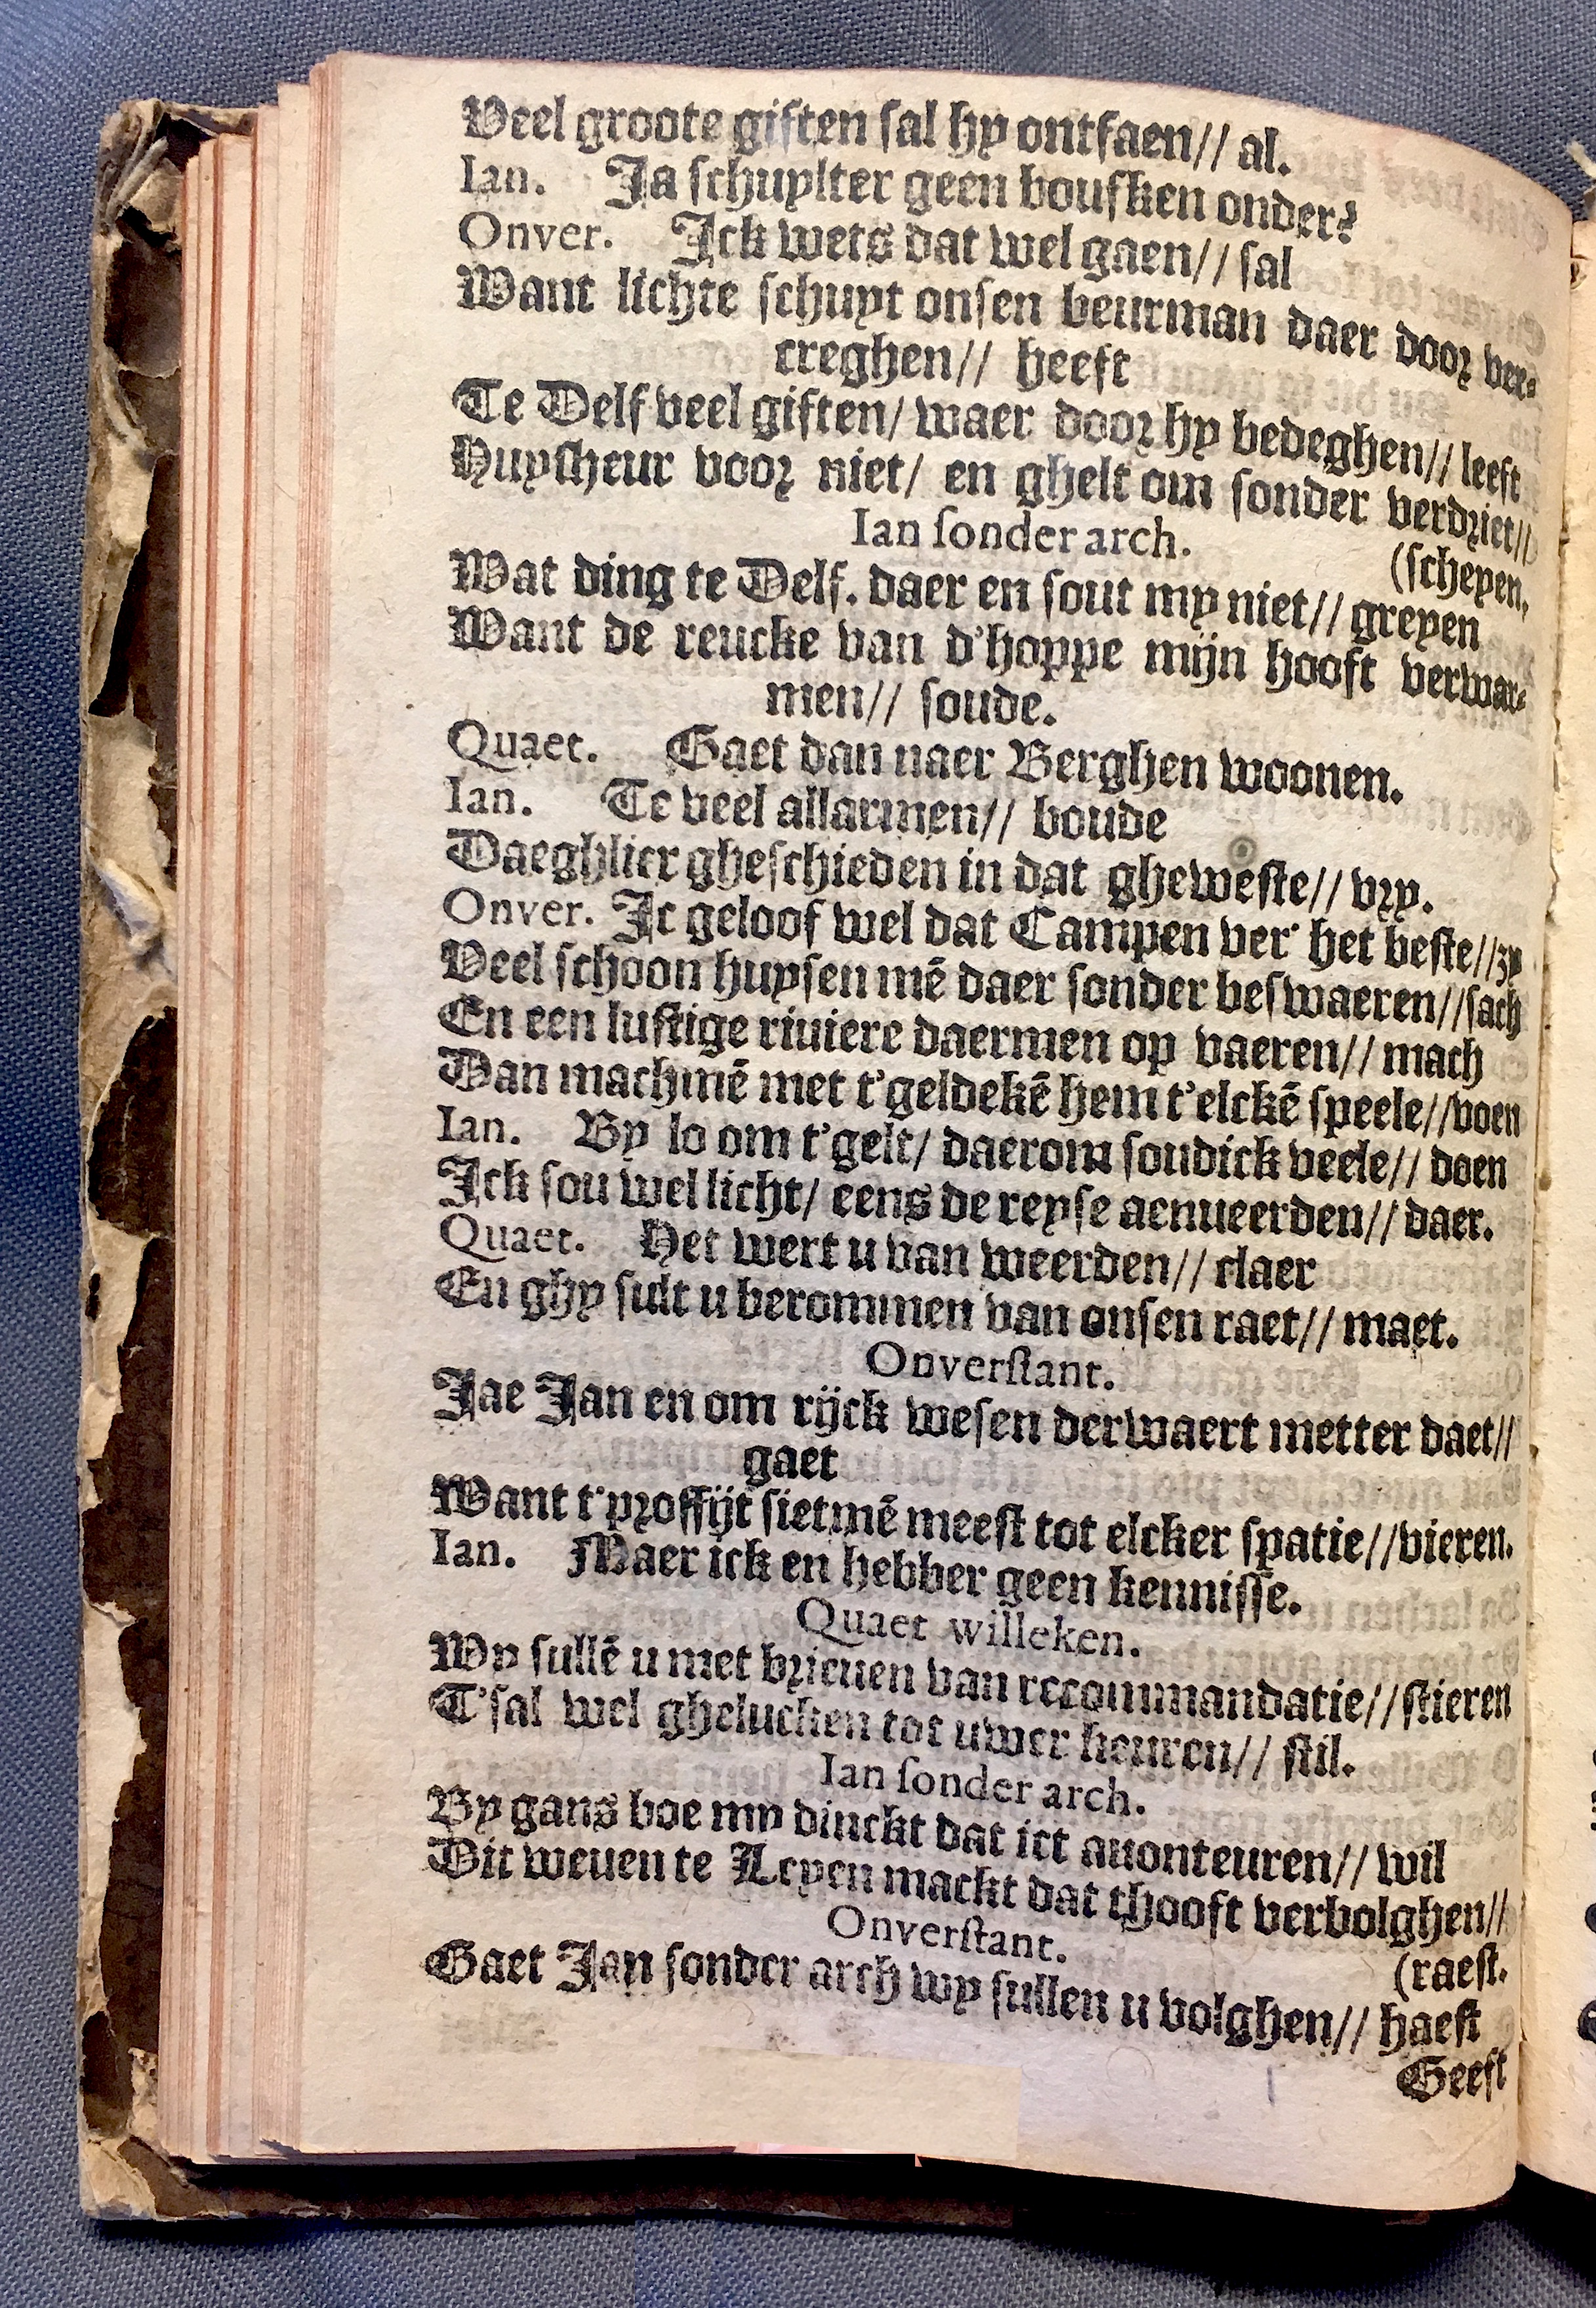 Veel groote giften sal hy ontfaen// al.
Ian. Ja schuylter geen boufken onder?
Onver. Ick wets dat wel gaen// sal
Want lichte schuyt onsen beurman daer door ver-
creghen// heeft
Te Delf veel giften/ waer door hy bedeghen// leeft
Huysheur voor niet/ en ghelt om sonder verdriet//
Ian sonder arch. (schepen,
Wat ding te Delf. daer en sout my niet// grepen
Want de reucke van d'hoppe mijn hooft verwar-
men// soude.
Quaet. Gaet dan naer Berghen woonen.
Ian. Te veel allarmen// boude
Daeghlicx gheschieden in dat gheweste// vry.
Onver. Ic geloof wel dat Campen ver' het beste//zy
Veel schoon huysen mē daer sonder beswaeren//sach
En een lustige riviere daermen op vaeren// mach
Dan machmē met t'geldekē hem t'elckē speele//voen
Ian. By lo om t'gelt/ daerom soudick veele// doen
Ick sou wel licht/ eens de reyse aenueerden// daer.
Quaet. Het wert u van weerden// claer
En ghy sult u berommen van onsen raet// maet.
Onverstant.
Jae Jan en om rijck wesen derwaert metter daet//
gaet
Want t'proffijt sietmē meest tot elcker spatie//vieren.
Ian. Maer ick en hebber geen kennisse.
Quaet willeken.
Wy sullē u met brieuen van recommandatie//stieren
T'sal wel ghelucken tot uwer keuren// stil.
Ian sonder arch.
By gans boe my dinckt dat ict auonteuren// wil
Dit weuen te Leyen mackt dat thooft verbolghen//
Onverstant. (raest.
Gaet Jan sonder arch wy sullen u volghen// haest
Geest